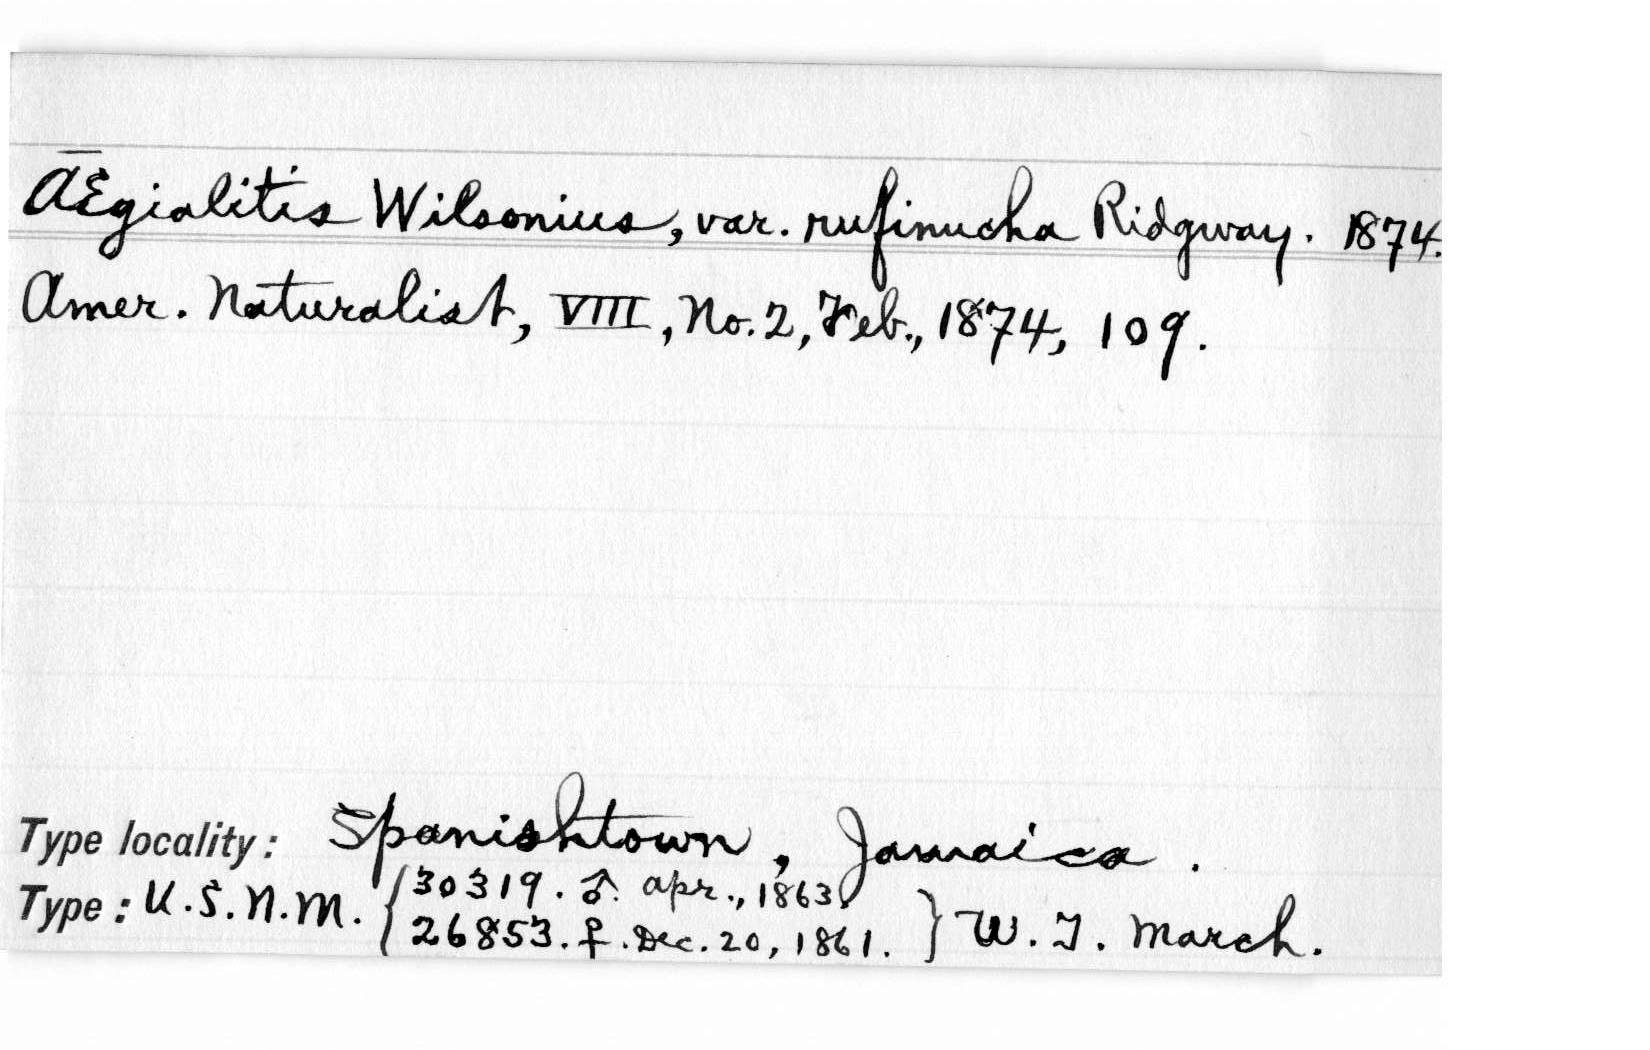 Ægialitis Wilsonius, var. rufinucha Ridgway. 1874.
Amer. Naturalist, VIII, No. 2, Feb., 1874, 109.
Type locality: Spanishtown, Jamaica.
Type: U.S.N.M. { 30319. ♂. Apr., 1863.
26853. ♀. Dec. 20, 1861. } W. T. March.